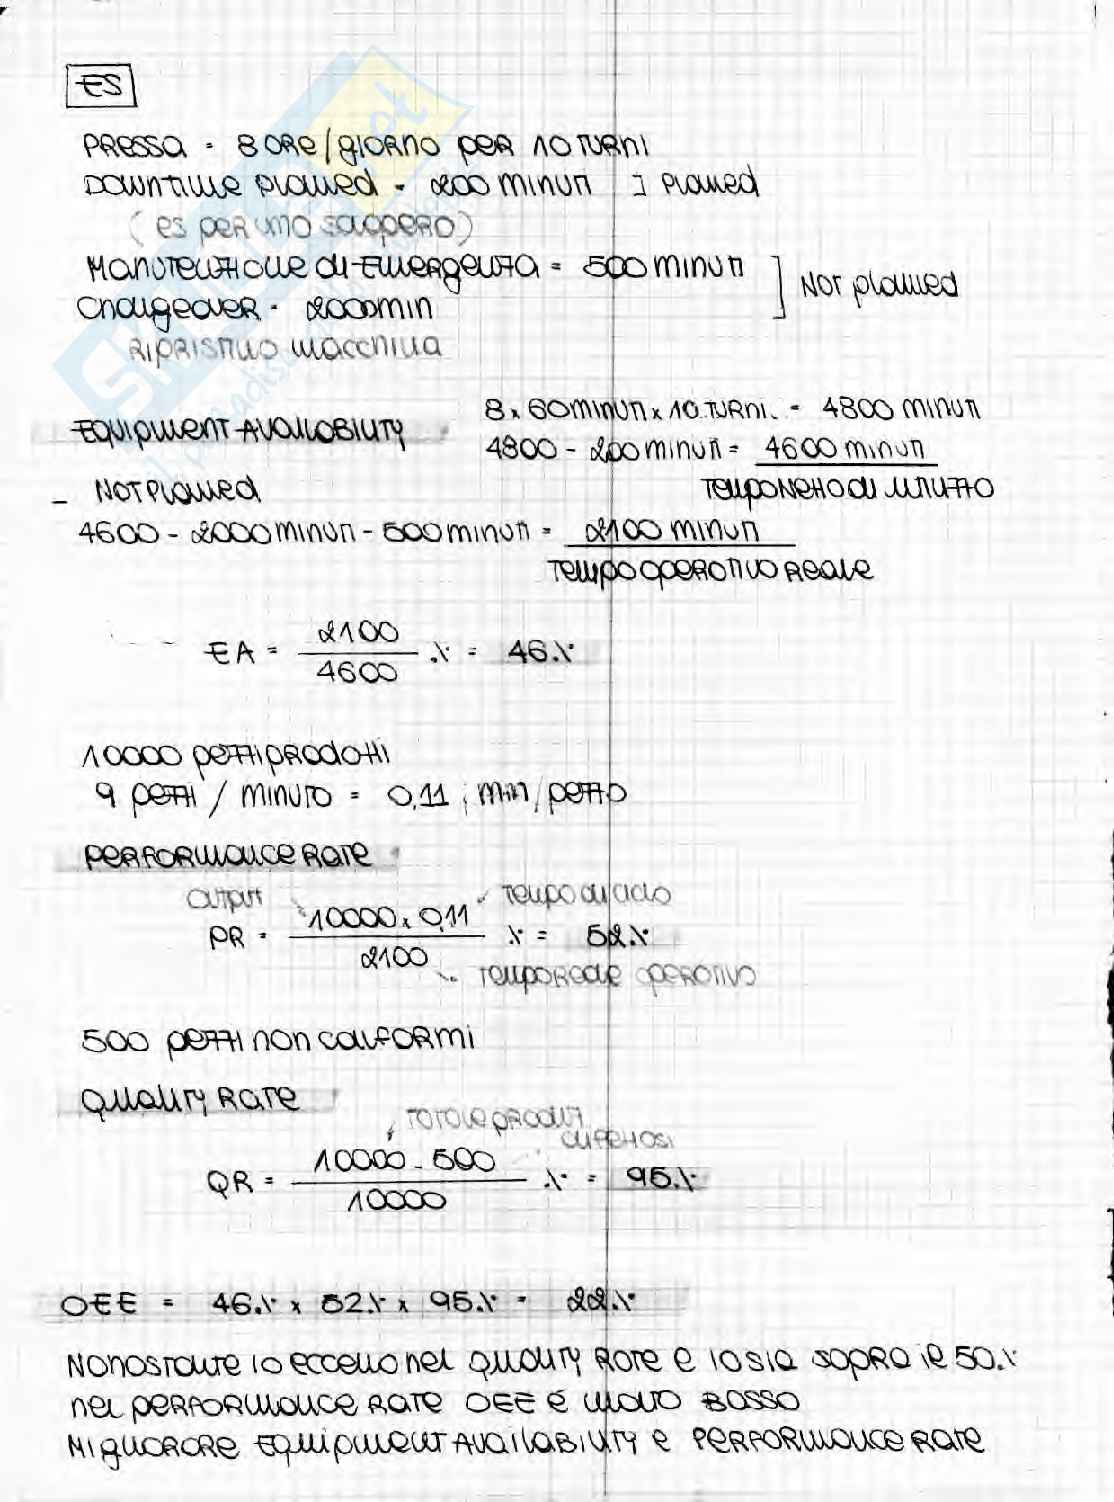 ES
PRESSA = 8 ORE/GIORNO PER 10 TURNI
DOWNTIME PLANNED = 200 MINUTI ] PLANNED
(ES PER UNO SCIOPERO)
MANUTENZIONE DI EMERGENZA = 500 MINUTI ] NOT PLANNED
CHANGEOVER = 2000 MIN
RIPRISTINO MACCHINA
EQUIPMENT AVAILABILITY 8 x 60 MINUTI x 10 TURNI = 4800 MINUTI
4800 - 200 MINUTI = 4600 MINUTI
- NOT PLANNED TEMPO NETTO DI UTILIZZO
4600 - 2000 MINUTI - 500 MINUTI = 2100 MINUTI
TEMPO OPERATIVO REALE
EA = 2100 / 4600 % = 46%
10000 PEZZI PRODOTTI
9 PEZZI / MINUTO = 0,11 MIN/PEZZO
PERFORMANCE RATE
OUTPUT TEMPO DI CICLO
PR = 10000 x 0,11 / 2100 % = 52%
TEMPO REALE OPERATIVO
500 PEZZI NON CONFORMI
QUALITY RATE
TOTALE PRODOTTI
DIFETTOSI
QR = 10000 - 500 / 10000 % = 95%
OEE = 46% x 52% x 95% = 22%
NONOSTANTE IO ECCELLO NEL QUALITY RATE E IO SIA SOPRA IL 50%
NEL PERFORMANCE RATE OEE È MOLTO BASSO
MIGLIORARE EQUIPMENT AVAILABILITY E PERFORMANCE RATE